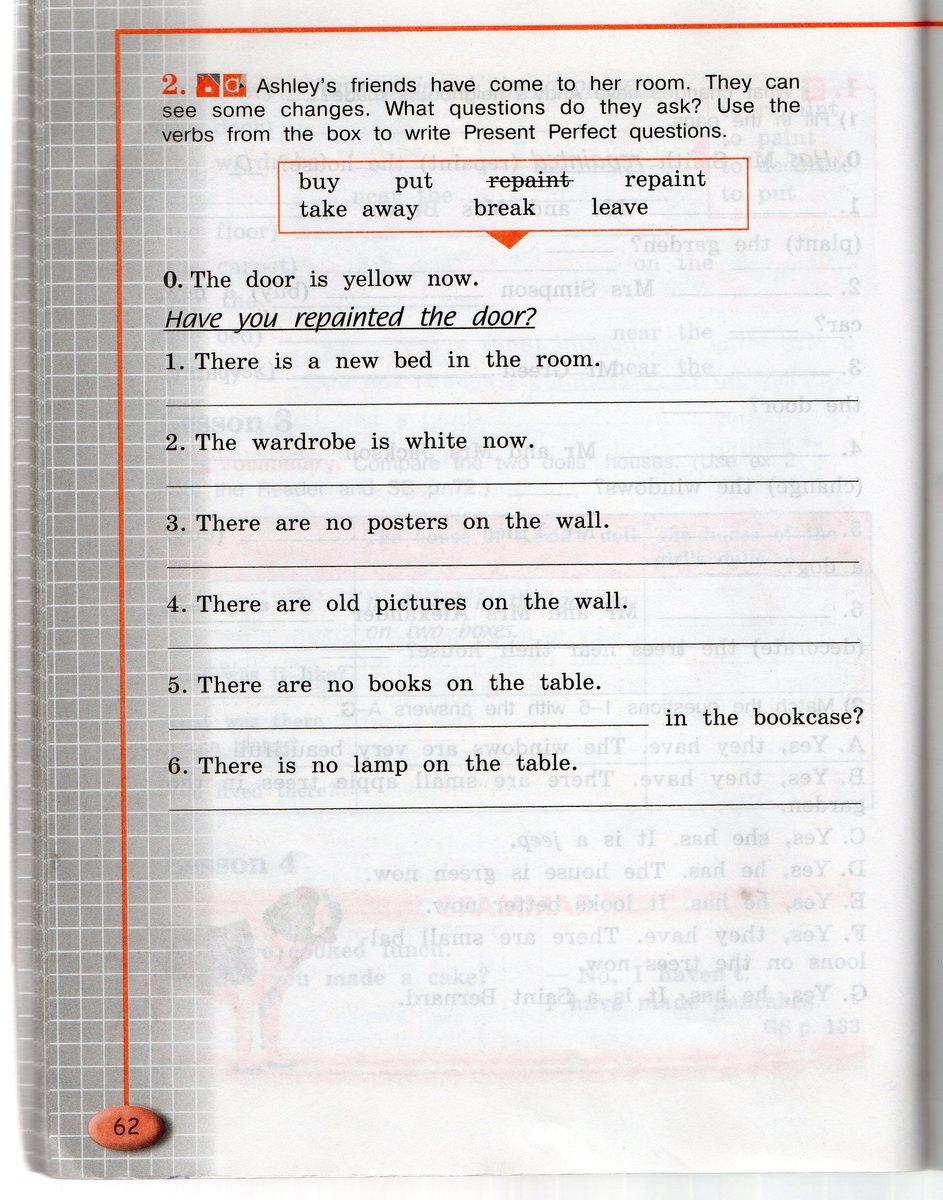 2. Ashley's friends have come to her room. They can
see some changes. What questions do they ask? Use the
verbs from the box to write Present Perfect questions.
buy put repaint repaint
take away break leave
0. The door is yellow now.
Have you repainted the door?
1. There is a new bed in the room.
2. The wardrobe is white now.
3. There are no posters on the wall.
4. There are old pictures on the wall.
5. There are no books on the table.
in the bookcase?
6. There is no lamp on the table.
62